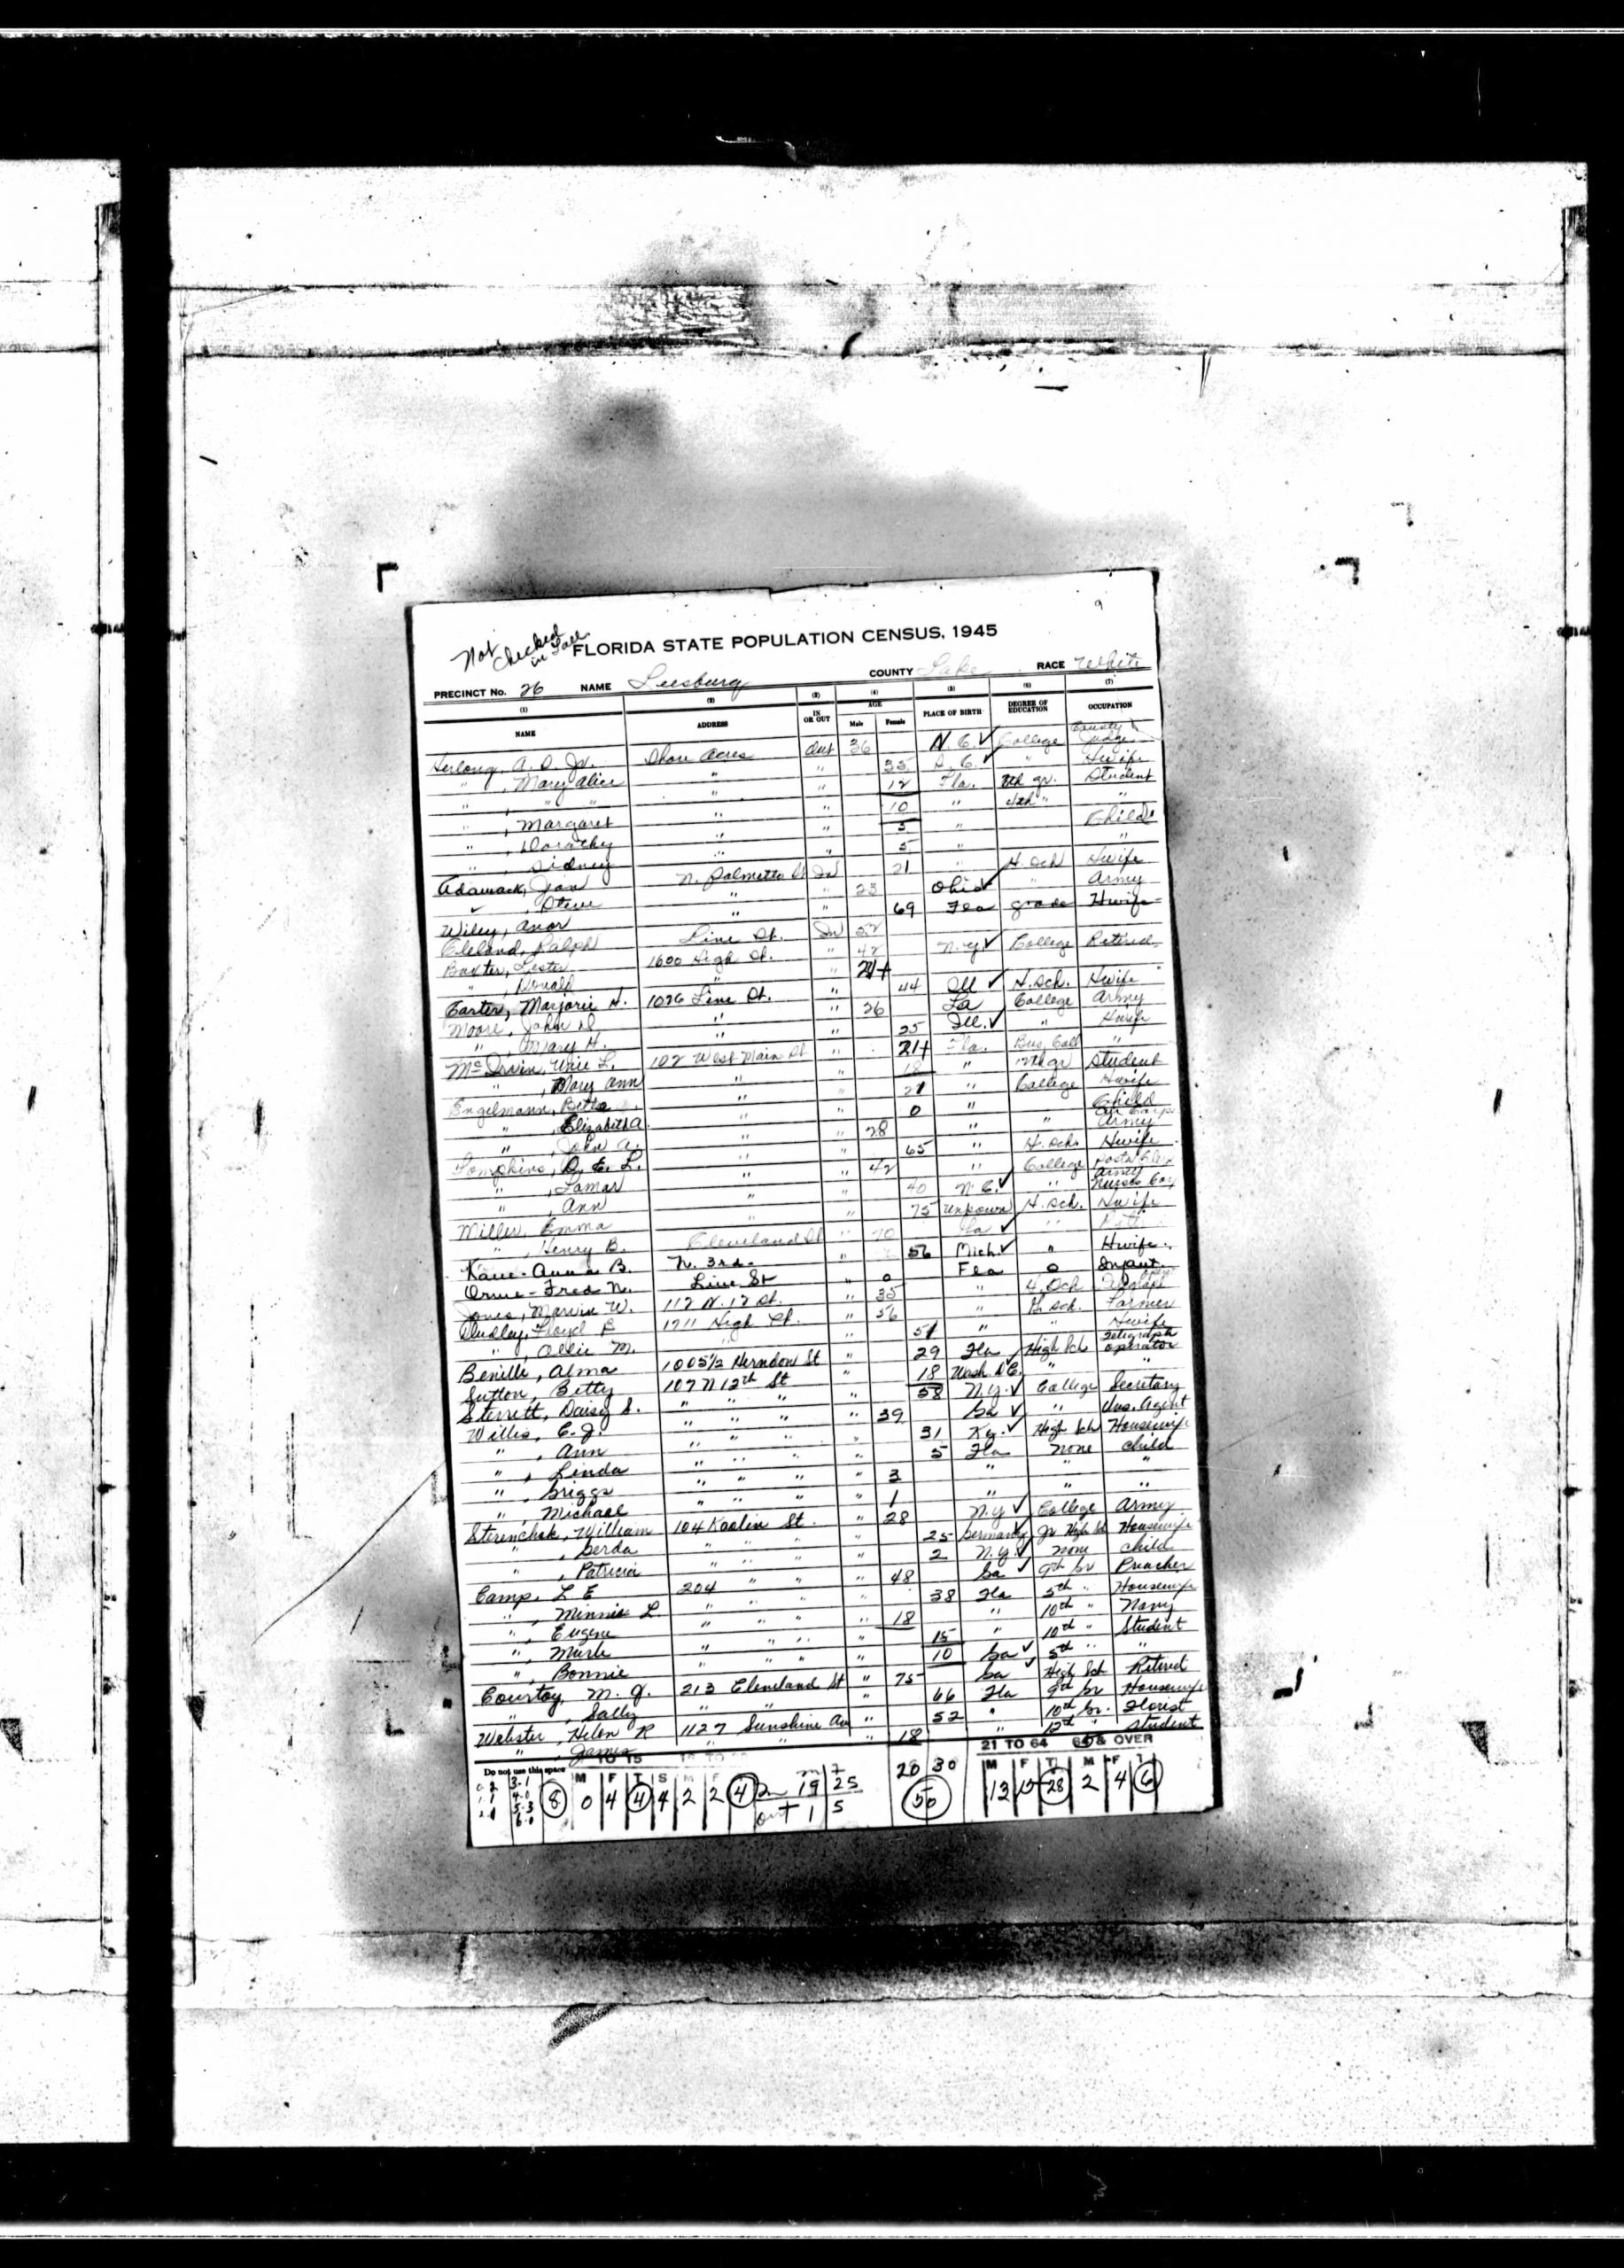 9
Not Checked in Tall.
FLORIDA STATE POPULATION CENSUS, 1945
PRECINCT No. 26 NAME Leesburg COUNTY Lake RACE White
(1) (2) (3) (4) (5) (6) (7)
NAME ADDRESS IN OR OUT AGE Male Female PLACE OF BIRTH DEGREE OF EDUCATION OCCUPATION
Herlong, A. S. Jr. Shore Acres Out 36 N.C. ✓ College County Judge
" , Mary Alice " " 35 S.C. ✓ " Hwife
" , " " " " 12 Fla. 7th gr. Student
" , Margaret " " 10 " 4th " "
" , Dorothy " " 5 " Child
" , Sidney " " 5 " "
Adamack, Jean N. Palmetto St In 21 " H. Sch Hwife
✓ , Steve " " 23 Ohio ✓ " Army
Wiley, Anor " " 69 Fla grade Hwife
Cleland, Ralph Line St. In 52 N.Y ✓ College Retired
Baxter, Lester 1600 High St. " 42
" , " " 21+
Carter, Marjorie H. 1026 Line St. " 44 Ill ✓ H. Sch. Hwife
Moore, John D. " " 26 La College Army
" , Mary H. " " 25 Ill. ✓ " Hwife
McIrvin, Unie L. 102 West Main St " 21+ Fla. Bus. Coll "
" , Mary Ann " " 18 " gr Student
Engelmann, Betta " " 21 " College Hwife
" , Elizabeth A. " " 0 " Child
" , John A. " " 28 " " Air Corps Army
Tompkins, D. E. L. " " 65 " H. Sch Hwife
" , Lamar " " 42 " College Postal Army
" , Ann " " 40 N.C. ✓ " Nurses
Miller, Emma " " 75 Unknown H. Sch. Hwife
" , Henry B. Cleveland St " 70 ✓ "
Kane - Anna B. N. 3rd. " 56 Mich. ✓ " Hwife.
Orme - Fred N. Line St " 0 Fla 0 Infant
Jones, Marvin W. 112 N. 12 St. " 35 " H. Sch
Dudley, Floyd 1211 High St. " 56 " H. Sch. Farmer
" , Allie M. " " 51 " " Hwife
Beville, Alma 1005½ Herndon St " 29 Fla High Sch Telegraph operator
Sutton, Betty 107 N 12th St " 18 Wash D.C. " "
Sterrett, Daisy S. " " " " 58 N.Y. ✓ College Secretary
Willis, C. J. " " " " 39 Ga ✓ " Ins. Agent
" , Ann " " " " 31 Ky. ✓ High Sch Housewife
" , Linda " " " " 5 Fla none child
" , Griggs " " " " 3 " " "
" , Michael " " " " 1 " " "
Sterenchok, William 104 Kaolin St. " 28 N.Y ✓ College Army
" , Gerda " " " " 25 Germany Jr High Sch Housewife
" , Patricia " " " " 2 N.Y ✓ none child
Camp, L E 204 " " " 48 Ga ✓ 9th Gr Preacher
" , Minnie L. " " " " 38 Fla 5th " Housewife
" , Eugene " " " " 18 " 10th " Navy
" , Merle " " " " 15 " 10th " Student
" , Bonnie " " " " 10 Ga ✓ 5th " "
Courtoy, M. J. 213 Cleveland St " 75 Ga High Sch Retired
" , Sally " " " 66 Fla 9th Gr Housewife
Webster, Helen R 1127 Sunshine Av " 52 " 10th Gr. Florist
" , James " " " 18 " 12th " Student
Do not use this space TO 15 21 TO 64 65 & OVER
M F T S M F M F T M F T
8 0 4 4 4 2 2 4 In 19 25 20 30 50 13 15 28 2 4 6
out 1 5